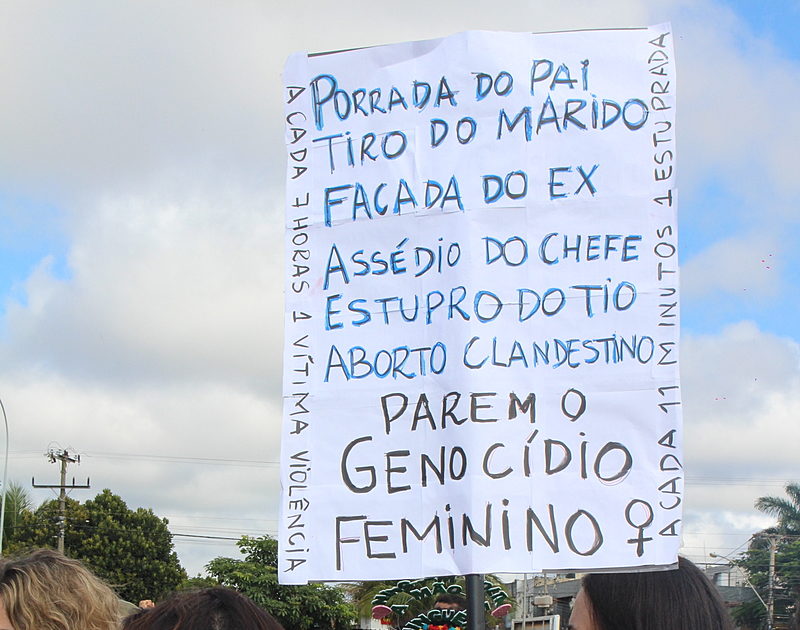 PORRADA DO PAI
TIRO DO MARIDO
FACADA DO EX
ASSÉDIO DO CHEFE
ESTUPRO DO TIO
ABORTO CLANDESTINO
PAREM O
GENOCÍDIO
FEMININO ♀
A CADA 7 HORAS 1 VÍTIMA VIOLÊNCIA
A CADA 11 MINUTOS 1 ESTUPRADA